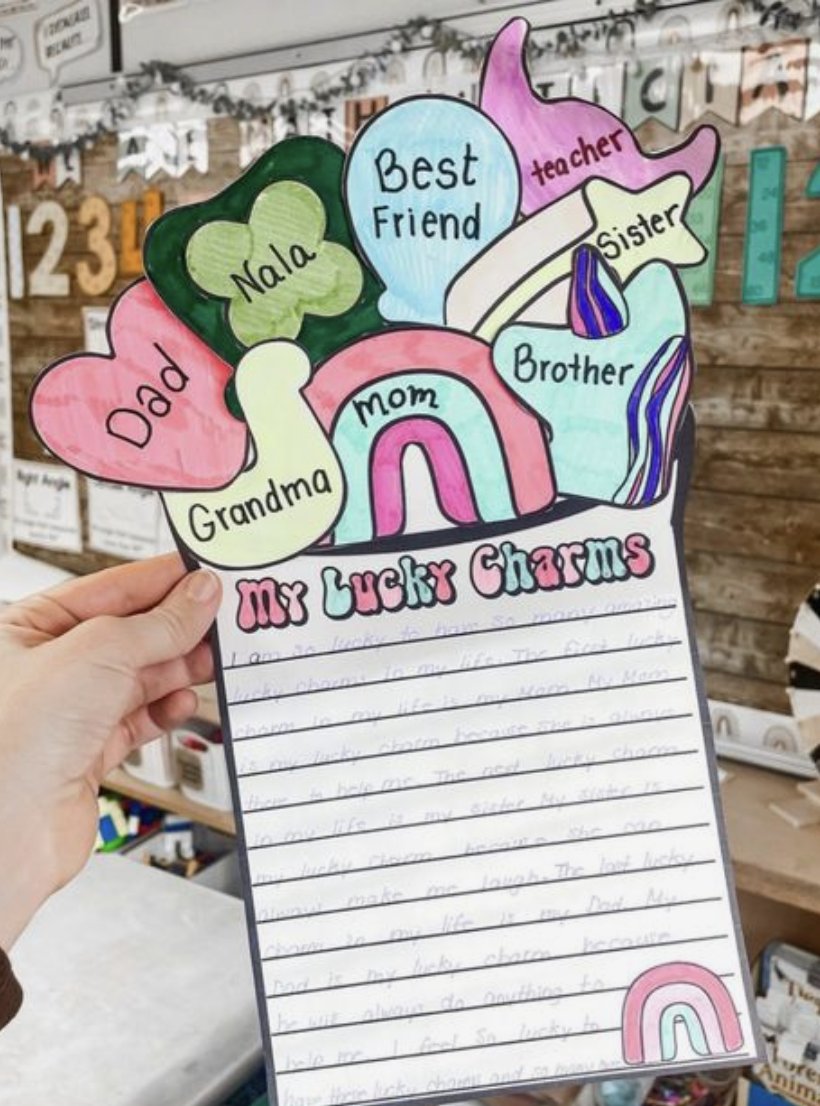 I DISAGREE
BECAUSE...
1234
teacher
Best
Friend
Sister
Nala
Dad
Brother
Mom
Grandma
Right Angle
My Lucky Charms
I am so lucky to have so many amazing
lucky charms in my life. The first lucky
charm in my life is my Mom. My Mom
is my lucky charm because she is always
there to help me. The next lucky charm
in my life is my sister. My sister is
my lucky charm because she can
always make me laugh. The last lucky
charm in my life is my Dad. My
Dad is my lucky charm because
he will always do anything to
help me. I feel so lucky to
have these lucky charms and so many